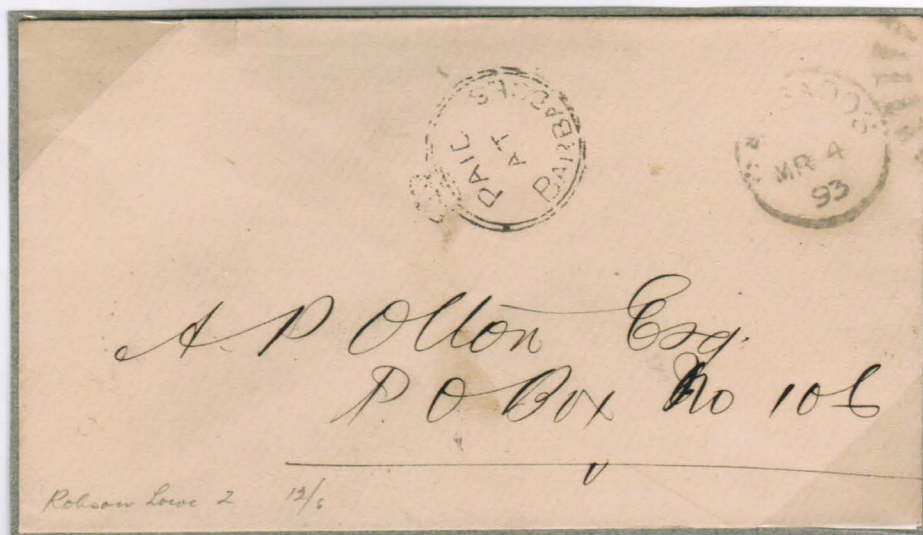 PAID
AT
BARBADOES
BARBADOS
MR 4
93
A P Olton Esq.
P. O Box No 106
Robson Lowe 2 12/6